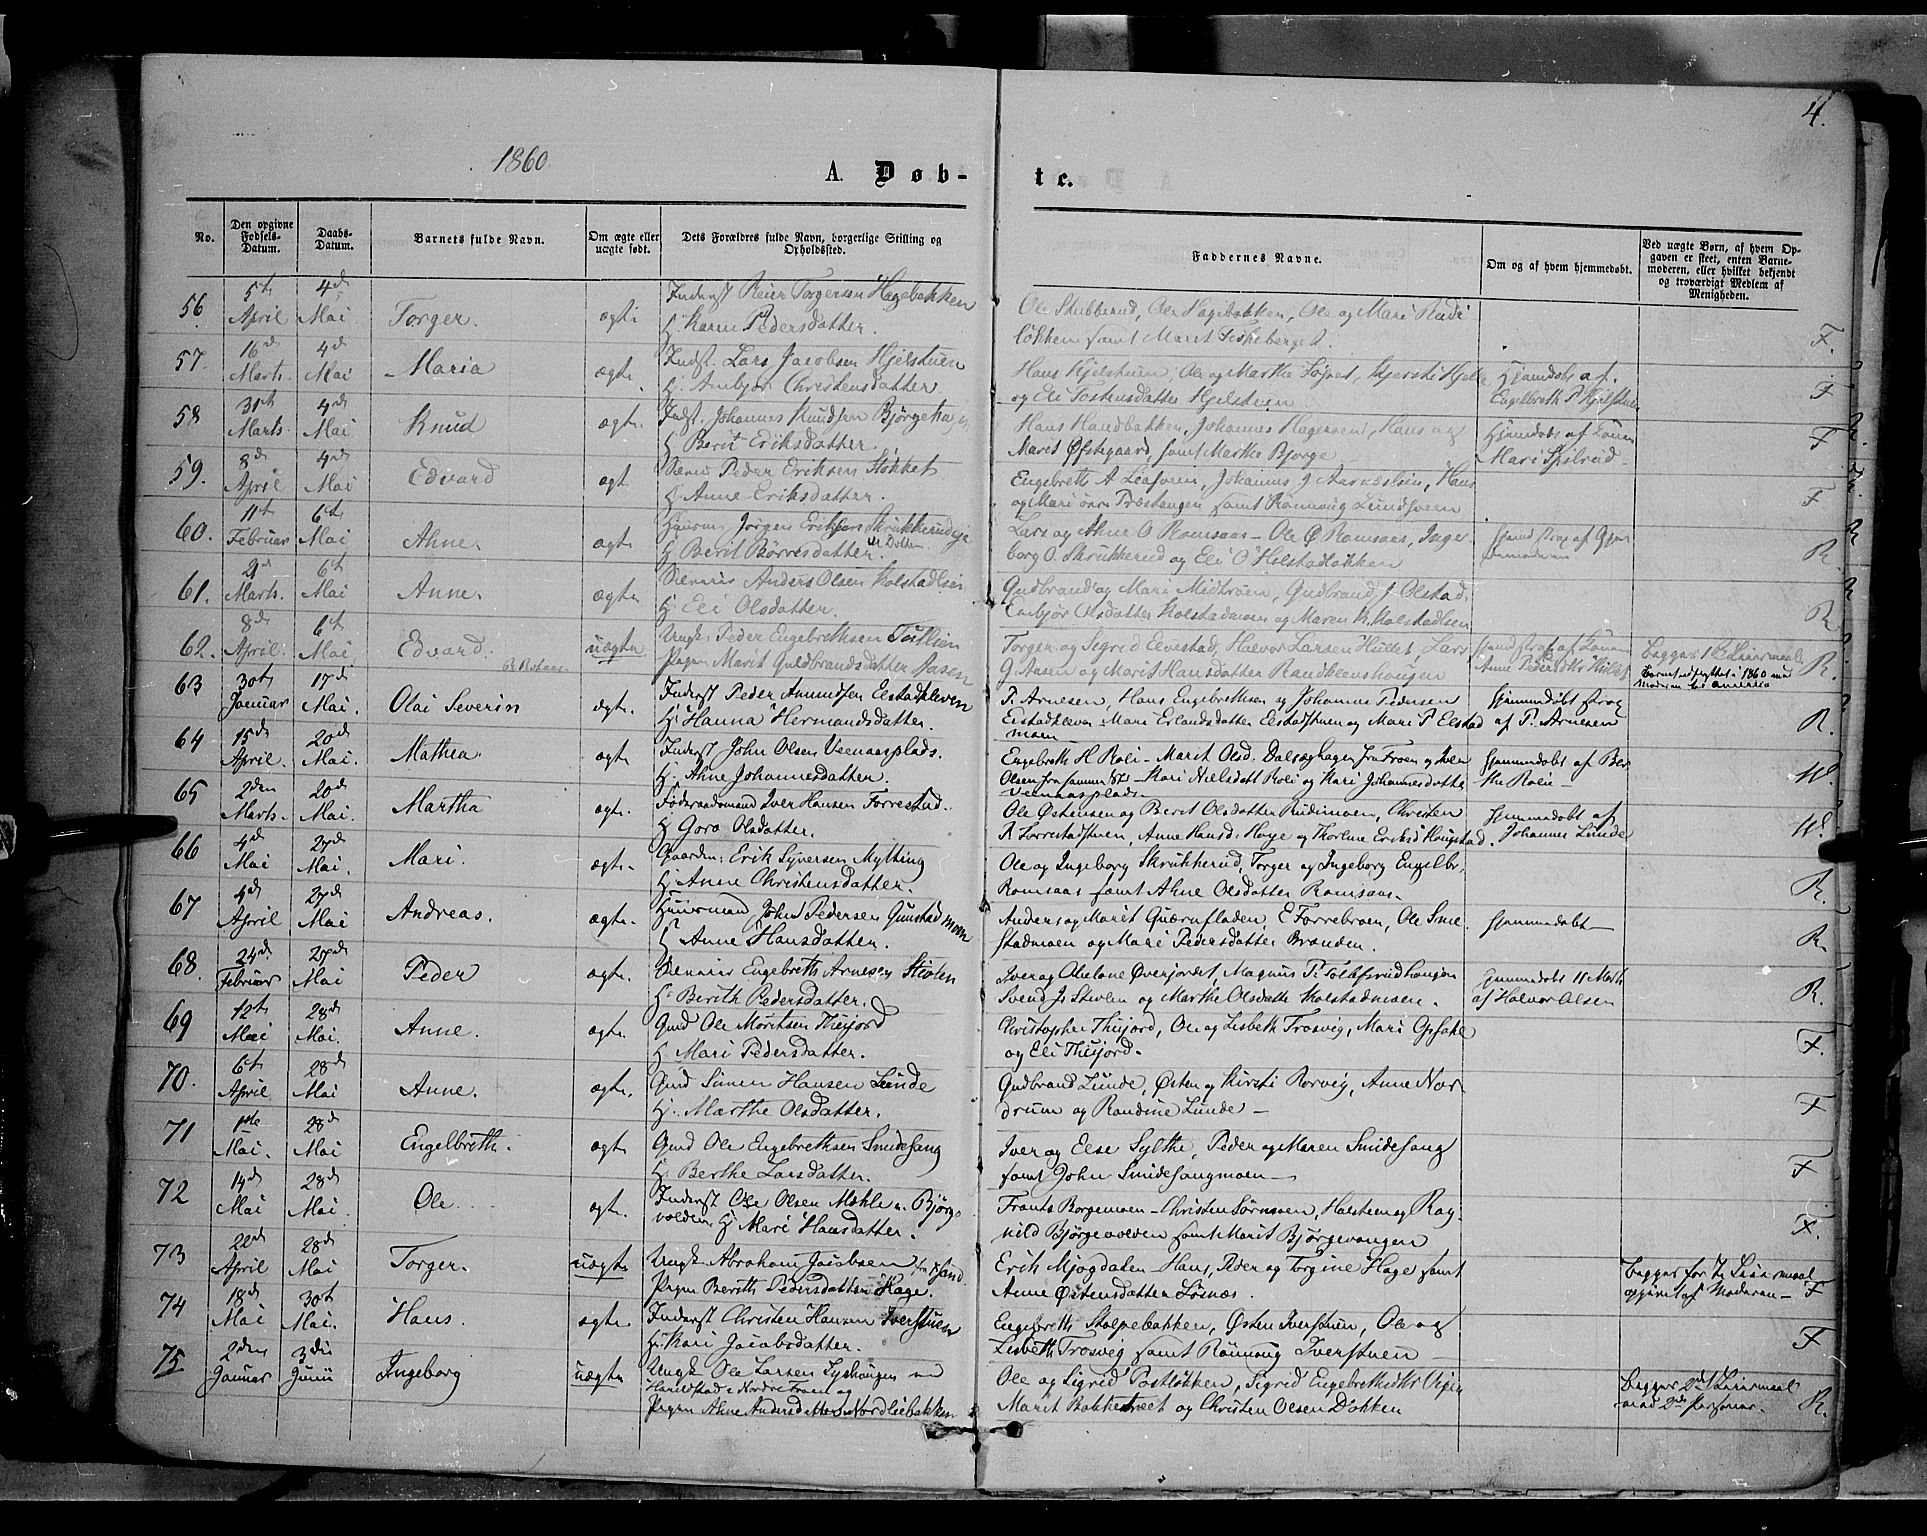 4.
1860.
A. Døb-
te.
No.
Den opgivne Fødsels-Datum.
Daabs-Datum.
Barnets fulde Navn.
Om ægte eller uægte født.
Dets Forældres fulde Navn, borgerlige Stilling og Opholdssted.
Faddernes Navne.
Om og af hvem hjemmedøbt.
Ved uægte Børn, af hvem Opgaven er skeet, enten Barnemoderen, eller hvilket bekjendt og troværdigt Medlem af Menigheden.
56 5t April 4de Mai Torger. ægte Inderst Reier Torgersen Hagebakken
H Karen Pedersdatter.
Ole Stubberud, Ole Hagebakken, Ole og Mari Rudi
løkken samt Marit Fiskeberget. F.
57. 16de Marts. 4de Mai Maria ægte Indst. Lars Jacobsen Hjelstuen
H. Anbjør Christensdatter
Hans Hjelstuen, Ole og Marthe
og Eli Tostensdatter Hjelstuen
Hjemdøbt af
Engelbreth P Hjelstuen F
58 31t Marts. 4de Mai Knud ægte. Indst. Johannes Knudsen Bjørgehagen
H Berit Eriksdatter.
Hans Haugbakken, Johannes Hageroen, Hans og
Marit Øfstegaard, samt Marthe Bjørge
Hjemdøbt af
Mari F
59. 8de April 4de Mai Edvard ægt Peder Eriksen Stokket
H Anne Eriksdatter.
Engebreth A Johannes J Hans
og Mari samt Rønnoug Lundsveen F
60. 11t Februar 6t Mai Ahne ægte Jørgen Eriksen Skrukkerudeje
H Berit Børresdatter.
Lars og Ahne O Romsaas - Ole Ø Romsaas, Inge
borg O. Skrukkerud og Eli O Holstadløkken
Hjemd strax af R.
61. Marts. 6t Mai Anne. ægte Anders Olsen Kolstadlien
H. Eli Olsdatter.
Gudbrand og Mari Midtrøen, Gudbrand J Olstad,
Olsdatter Kolstadmoen og Maren K. Kolstadlien R
62. 8de April. 6t Mai Edvard. uægte Ungk: Peder Engebrethsen Tostlien
Pigen Marit Guldbrandsdatter
Torger og Segrid Elvestad, Halvor Larsen Hullet, Lars
G Aasen og Marit Hansdatter
Hjemd strax af
Anne Pedersdtr Hullet
begges 1ste Leiermaal
Barnet udflyttet i 1860 med
Moderen til America R.
63 30t Januar 17de Mai. Olai Severin ægte. Inderst Peder Amundsen Elstadkleven
H. Hanna Hermandsdatter.
P. Arnesen, Hans Engebrethsen og Johannes Pedersen
Elstadkleven Mari Erlandsdatter Elstadstuen og Mari P Elstad
moen
hjemmedøbt strax
af P. Arnesen R.
64 15de April. 20de Mai. Mathea ægte Inderst John Olsen Veenaasplads.
H. Ahne Johannesdatter.
Engebreth H Roli - Marit Olsd. Dalseghagen fra Froen og Iver
Olsen fra samme St. - Kari Nielsdatt Roli og Kari Johannesdatter
Veenaasplads
hjemmedøbt af Ber
the Rolie - W.
65 2den Marts. 20de Mai. Martha ægte. Føderaadsmand Iver Hansen Forrestad.
H Goro Olsdatter.
Ole Østensen og Berit Olsdatter Rudimoen, Christen
Anne Hansd. Hage og Thorlene Eriksd Haugstad.
hjemmedøbt af
Johannes Lunde W.
66 4de Mai 27de Mai. Mari. ægte. Gaardm: Erik Syversen Mytting
H Anne Christensdatter.
Ole og Ingeborg Skrukkerud, Torger og Ingeborg Engelbr.
Romsaas samt Ahne Olsdatter Romsaas. R.
67 4de April 27de Mai Andreas. ægte. Huusmand John Pedersen Gunstadmoen
H Anne Hansdatter.
Anders og Marit Quærnfladen, E Forrebroen, Ole Sme
stadmoen og Mari Pedersdatter Branden.
hjemmedøbt R.
68. 24de Februar 27de Mai Peder ægte. Engebreth Arnesen Stiolen
H. Berith Pedersdatter.
Iver og Abelone Øverjordet, Magnus P. Tollefsrudhaugen
Svend J. og Marthe Olsdatte Kolstadmoen.
hjemmedøbt 11 Marts
af Halvor Olsen R.
69 12t Mai 28de Mai. Anne. ægte. Gmd Ole Moritsen Thujord
H Mari Pedersdatter.
Christopher Thujord, Ole og Lisbeth Trosvig, Mari Opsahl
og Eli Thujord. F.
70. 6t April 28de Mai Anne. ægte. Gmd Simen Hansen Lunde
H. Marthe Olsdatter.
Gudbrand Lunde, Østen og Kirsti Rorvig, Anne Nor
drum og Randine Lunde - F
71 1ste Mai. 28de Mai Engelbreth. ægte Gmd Ole Engebrethsen Smidesang
H. Berthe Larsdatter.
Iver og Else Sylthe, Peder og Maren Smidesang
samt John Smidesangmoen - F
72 14de Mai 28de Mai. Ole ægte. Inderst Ole Olsen Mæhle u. Bjørge
volden H Mari Hansdatter.
Frants Borgemoen - Christen Sørmoen, Halsteen og Rag
nild Bjørgevolden samt Marit Bjørgevangen F.
73 22de April 28de Mai Torger. uægte Ungk. Abraham Jacobsen
Pigen Berith Pedersdatter Hage.
Erik Mjogdalen - Hans, Peder og Torgine Hage samt
Anne Østensdatter Losnæs.
begges første Leiermaal
opgivet af Moderen - F
74 18de Mai 30t Mai. Hans. ægte. Inderst Christen Hansen Iverstuen
H. Kari Jacobsdatter.
Engebreth Stolpebakken, Østen Iverstuen, Ole og
Lisbeth Trosvig samt Rønnoug Iverstuen F
75 2den Januar 3die Junii Ingeborg uægte Ungk Ole Larsen
i Nordre Froen og
Pigen Ahne Andersdatter Nordliebakken
Ole og Sigrid Postløkken, Sigrid Engebrethsdtr
Marit Bakketræet og Christen Olsen Dokken
begges 2det Leiermaal
med 2de Personer. R.